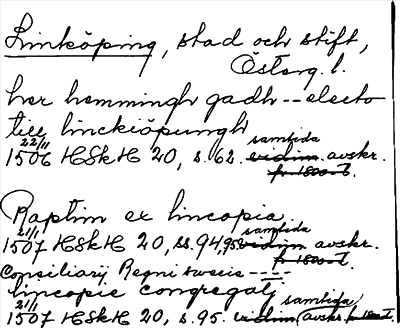 Linköping, stad och stift,
Österg. l.
her hemmingh gadh -- electo
till linckiöpungh
22/11 samtida
1506 HSkH 20, s. 62. vidim. avskr.
fr. 1800-t.
Raptim ex lincopia.
21/1 samtida
1507 HSkH 20, ss. 94, 95 vidim. avskr.
fr. 1800-t.
Consiliarij Regni swecie ----
lincopie congregatj
21/1 samtida
1507 HSkH 20, s. 95. vidim avskr. fr. 1800-t.